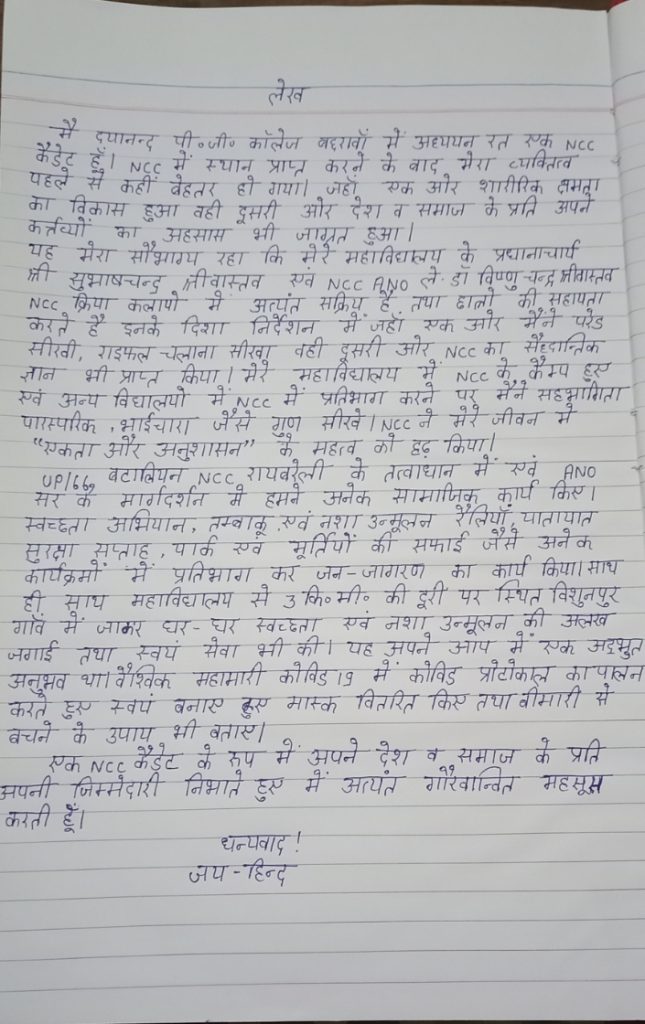 लेख
मै दयानन्द पी०जी० कॉलेज बछरावाँ में अध्ययन रत एक NCC
कैडेट हूँ। NCC में स्थान प्राप्त करने के बाद मेरा व्यक्तित्व
पहले से कहीं बेहतर हो गया। जहाँ एक ओर शारीरिक क्षमता
का विकास हुआ वही दूसरी ओर देश व समाज के प्रति अपने
कर्त्तव्यों का अहसास भी जाग्रत हुआ।
यह मेरा सौभाग्य रहा कि मेरे महाविद्यालय के प्रधानाचार्य
श्री सुभाषचन्द्र श्रीवास्तव एवं NCC ANO ले. डॉ विष्णु चन्द्र श्रीवास्तव
NCC क्रिया कलापो में अत्यंत सक्रिय है तथा छात्रो की सहायता
करते है इनके दिशा निर्देशन में जहाँ एक ओर मैने परेड
सीखी, राइफल चलाना सीखा वही दूसरी ओर NCC का सैद्धान्तिक
ज्ञान भी प्राप्त किया। मेरे महाविद्यालय में NCC के कैम्प हुए
एवं अन्य विद्यालयो में NCC में प्रतिभाग करने पर मैने सहभागिता
पारस्परिक, भाईचारा जैसे गुण सीखे। NCC ने मेरे जीवन मे
"एकता और अनुशासन" के महत्व को दृढ़ किया।
UP/66, बटालियन NCC रायबरेली के तत्वाधान में एवं ANO
सर के मार्गदर्शन मे हमने अनेक सामाजिक कार्य किए।
स्वच्छता अभियान, तम्बाकू एवं नशा उन्मूलन रैलियाँ, यातायात
सुरक्षा सप्ताह, पार्क एवं मूर्तियों की सफाई जैसे अनेक
कार्यक्रमों में प्रतिभाग कर जन-जागरण का कार्य किया। साथ
ही साथ महाविद्यालय से 3 कि०मी० की दूरी पर स्थित विशुनपुर
गाँव में जाकर घर-घर स्वच्छता एवं नशा उन्मूलन की अलख
जगाई तथा स्वयं सेवा भी की। यह अपने आप में एक अद्भुत
अनुभव था। वैश्विक महामारी कोविड 19 में कोविड प्रोटोकाल का पालन
करते हुए स्वयं बनाए हुए मास्क वितरित किए तथा बीमारी से
बचने के उपाय भी बताए।
एक NCC कैडेट के रूप में अपने देश व समाज के प्रति
अपनी जिम्मेदारी निभाते हुए में अत्यंत गौरवान्वित महसूस
करती हूँ।
धन्यवाद!
जय-हिन्द